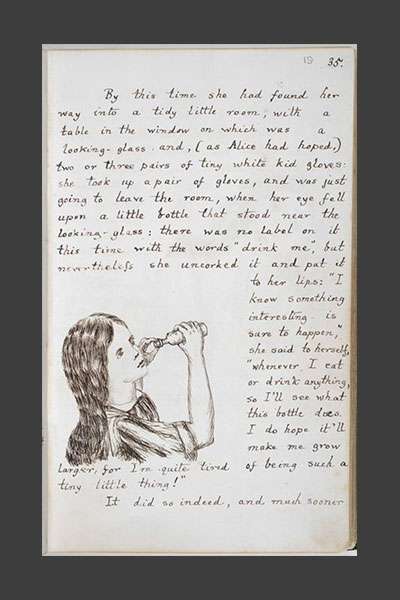 19 35.
By this time she had found her
way into a tidy little room, with a
table in the window on which was a
looking-glass and, (as Alice had hoped,)
two or three pairs of tiny white kid gloves:
she took up a pair of gloves, and was just
going to leave the room, when her eye fell
upon a little bottle that stood near the
looking-glass: there was no label on it
this time with the words "drink me", but
nevertheless she uncorked it and put it
to her lips: "I
know something
interesting is
sure to happen,"
she said to herself,
"whenever I eat
or drink anything,
so I'll see what
this bottle does.
I do hope it'll
make me grow
larger, for I'm quite tired of being such a
tiny little thing!"
It did so indeed, and much sooner